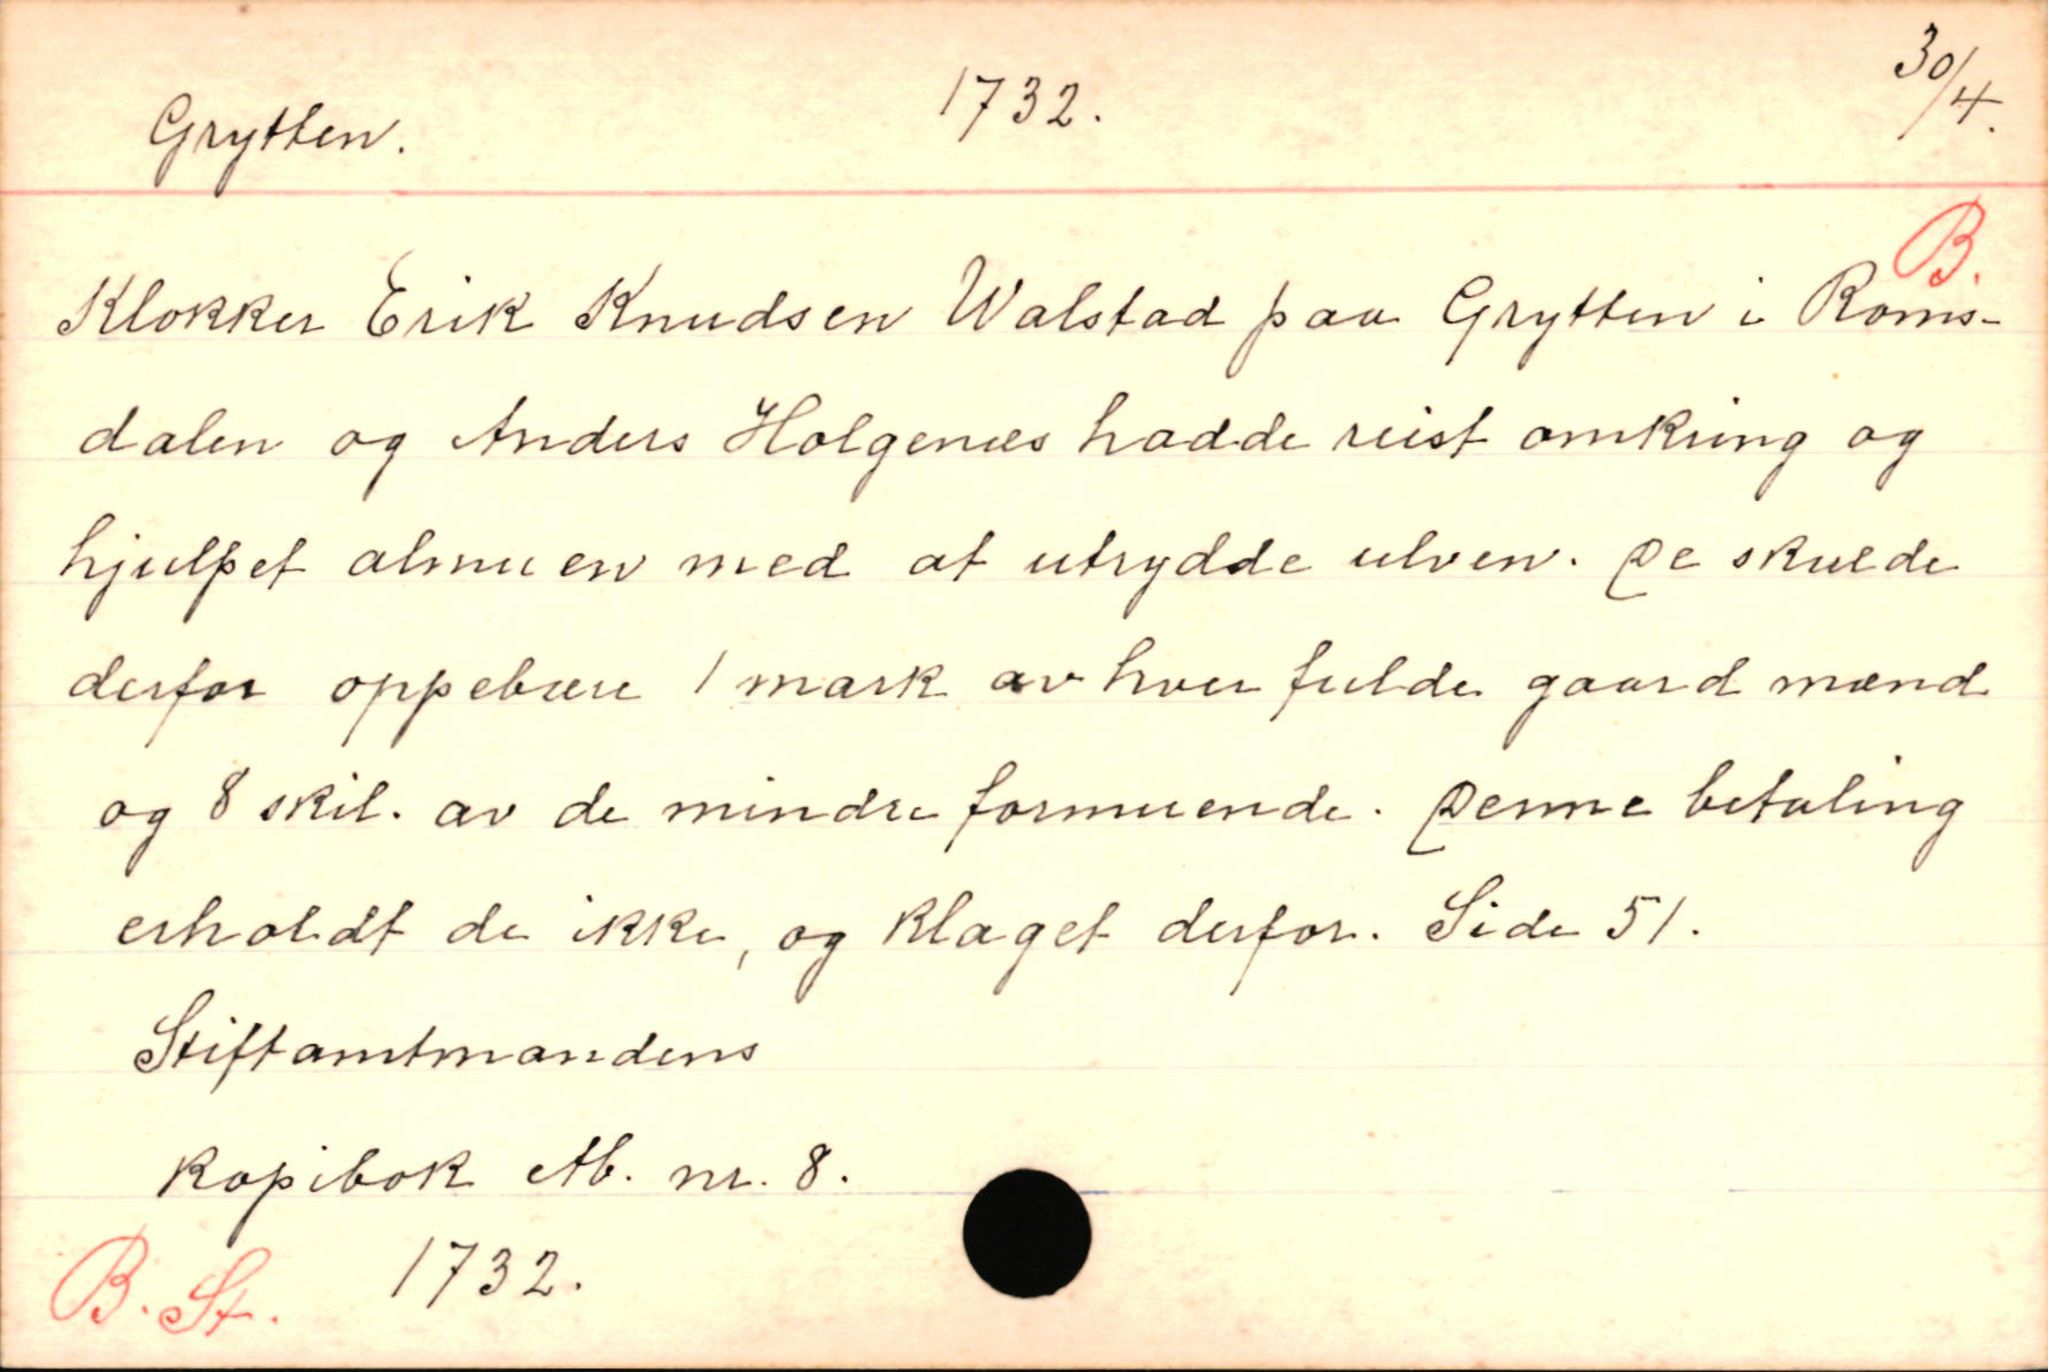 Grytten. 1732. 30/4.
B.
Klokker Erik Knudsen Walstad paa Grytten i Roms-
dalen og Anders Holgenes hadde reist omkring og
hjulpet almuen med at utrydde ulven. De skulde
derfor oppebære 1 mark av hver fulde gaard mænd
og 8 skil. av de mindre formuende. Denne betaling
erholdt de ikke, og klaget derfor. Side 51.
Stiftamtmandens
kopibok Ab. nr. 8.
B. St. 1732.